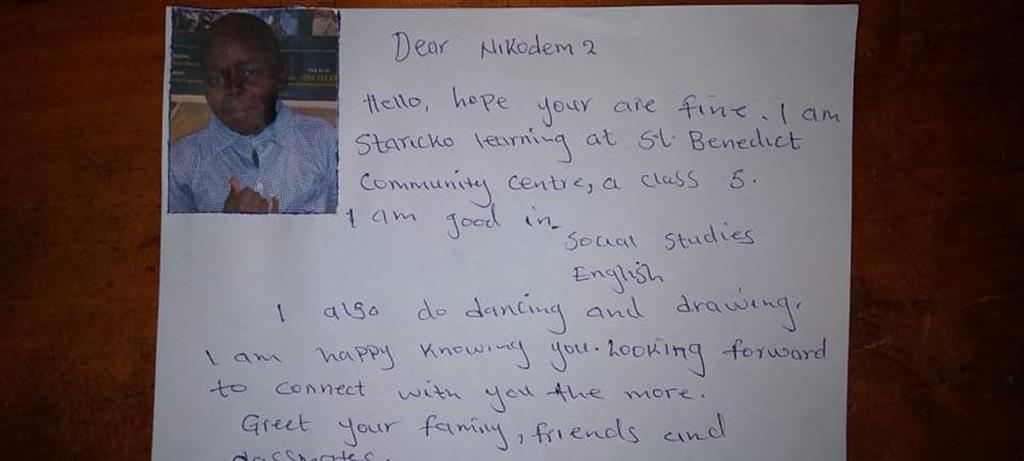 Dear Nikodem 2
Hello, hope your are fine. I am
Staricko learning at St. Benedict
Community Centre, a class 5.
I am good in
Social Studies
English
I also do dancing and drawing.
I am happy knowing you. Looking forward
to connect with you the more.
Greet your family, friends and
classmates.